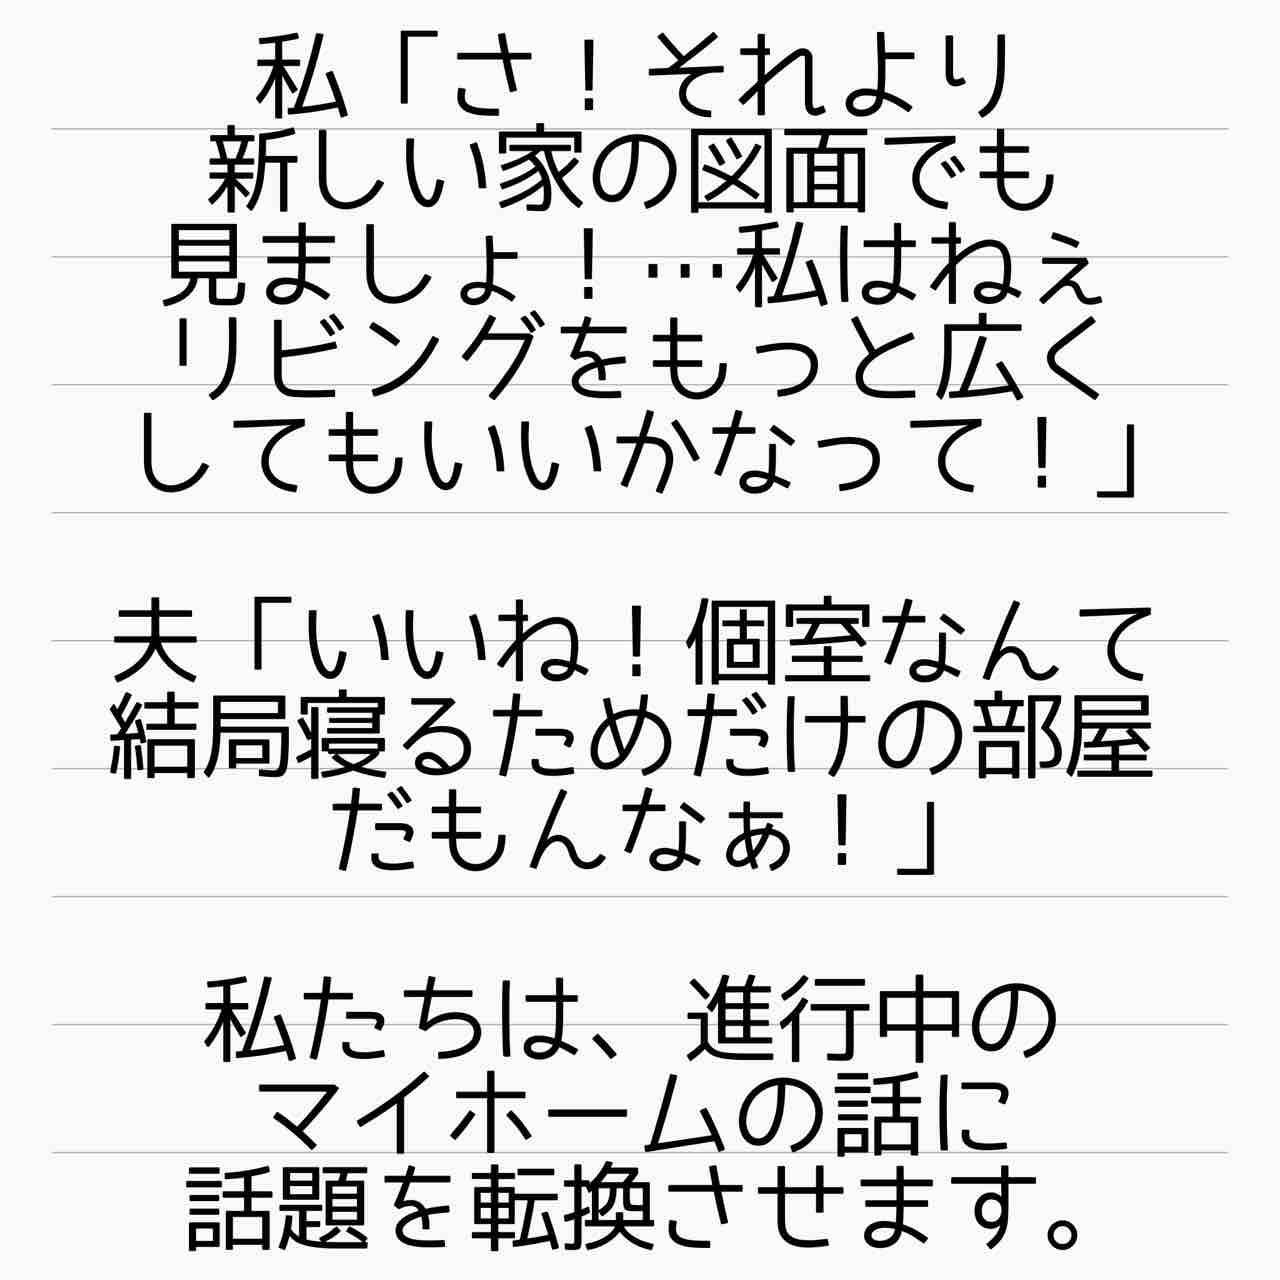 私「さ！それより
新しい家の図面でも
見ましょ！…私はねぇ
リビングをもっと広く
してもいいかなって！」
夫「いいね！個室なんて
結局寝るためだけの部屋
だもんなぁ！」
私たちは、進行中の
マイホームの話に
話題を転換させます。